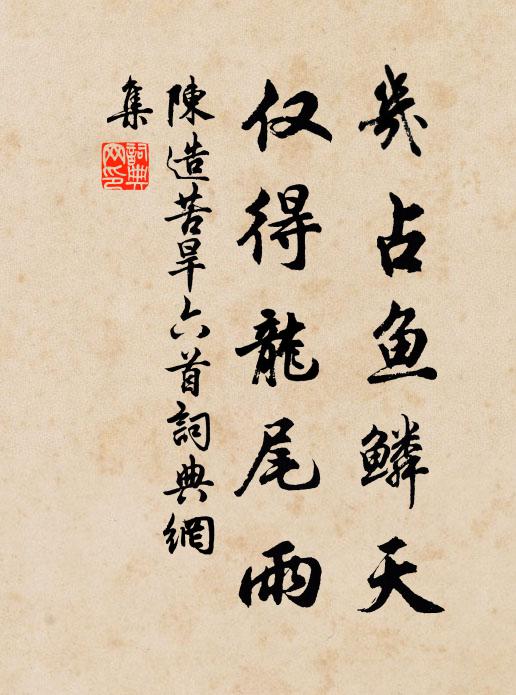 幾占鱼鱗天
仅得龍尾雨
陳造苦旱六首詞典網
集
詞典
网印